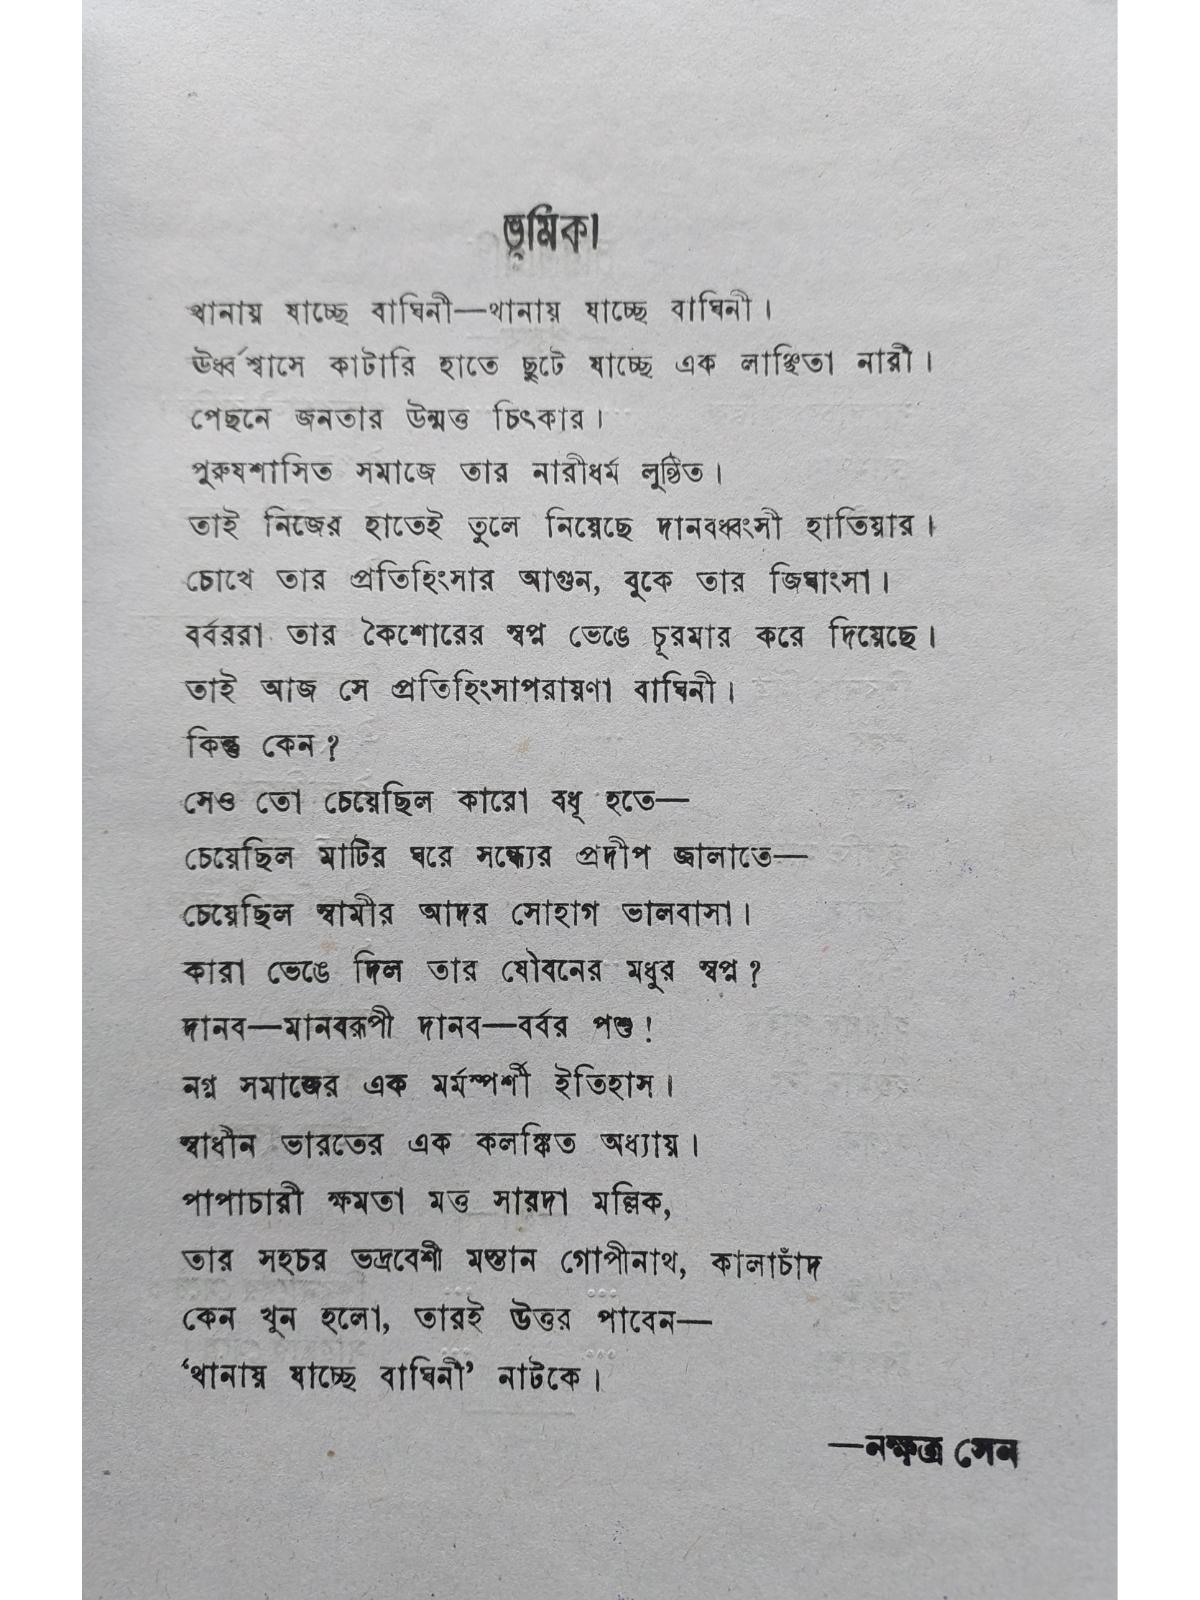 ভূমিকা
থানায় যাচ্ছে বাঘিনী—থানায় যাচ্ছে বাঘিনী।
ঊর্ধ্বশ্বাসে কাটারি হাতে ছুটে যাচ্ছে এক লাঞ্ছিতা নারী।
পেছনে জনতার উন্মত্ত চিৎকার।
পুরুষশাসিত সমাজে তার নারীধর্ম লুণ্ঠিত।
তাই নিজের হাতেই তুলে নিয়েছে দানবধ্বংসী হাতিয়ার।
চোখে তার প্রতিহিংসার আগুন, বুকে তার জিঘাংসা।
বর্বররা তার কৈশোরের স্বপ্ন ভেঙে চূরমার করে দিয়েছে।
তাই আজ সে প্রতিহিংসাপরায়ণা বাঘিনী।
কিন্তু কেন?
সেও তো চেয়েছিল কারো বধূ হতে—
চেয়েছিল মাটির ঘরে সন্ধ্যের প্রদীপ জ্বালাতে—
চেয়েছিল স্বামীর আদর সোহাগ ভালবাসা।
কারা ভেঙে দিল তার যৌবনের মধুর স্বপ্ন?
দানব—মানবরূপী দানব—বর্বর পশু!
নগ্ন সমাজের এক মর্মস্পর্শী ইতিহাস।
স্বাধীন ভারতের এক কলঙ্কিত অধ্যায়।
পাপাচারী ক্ষমতা মত্ত সারদা মল্লিক,
তার সহচর ভদ্রবেশী মস্তান গোপীনাথ, কালাচাঁদ
কেন খুন হলো, তারই উত্তর পাবেন—
‘থানায় যাচ্ছে বাঘিনী’ নাটকে।
—নক্ষত্র সেন